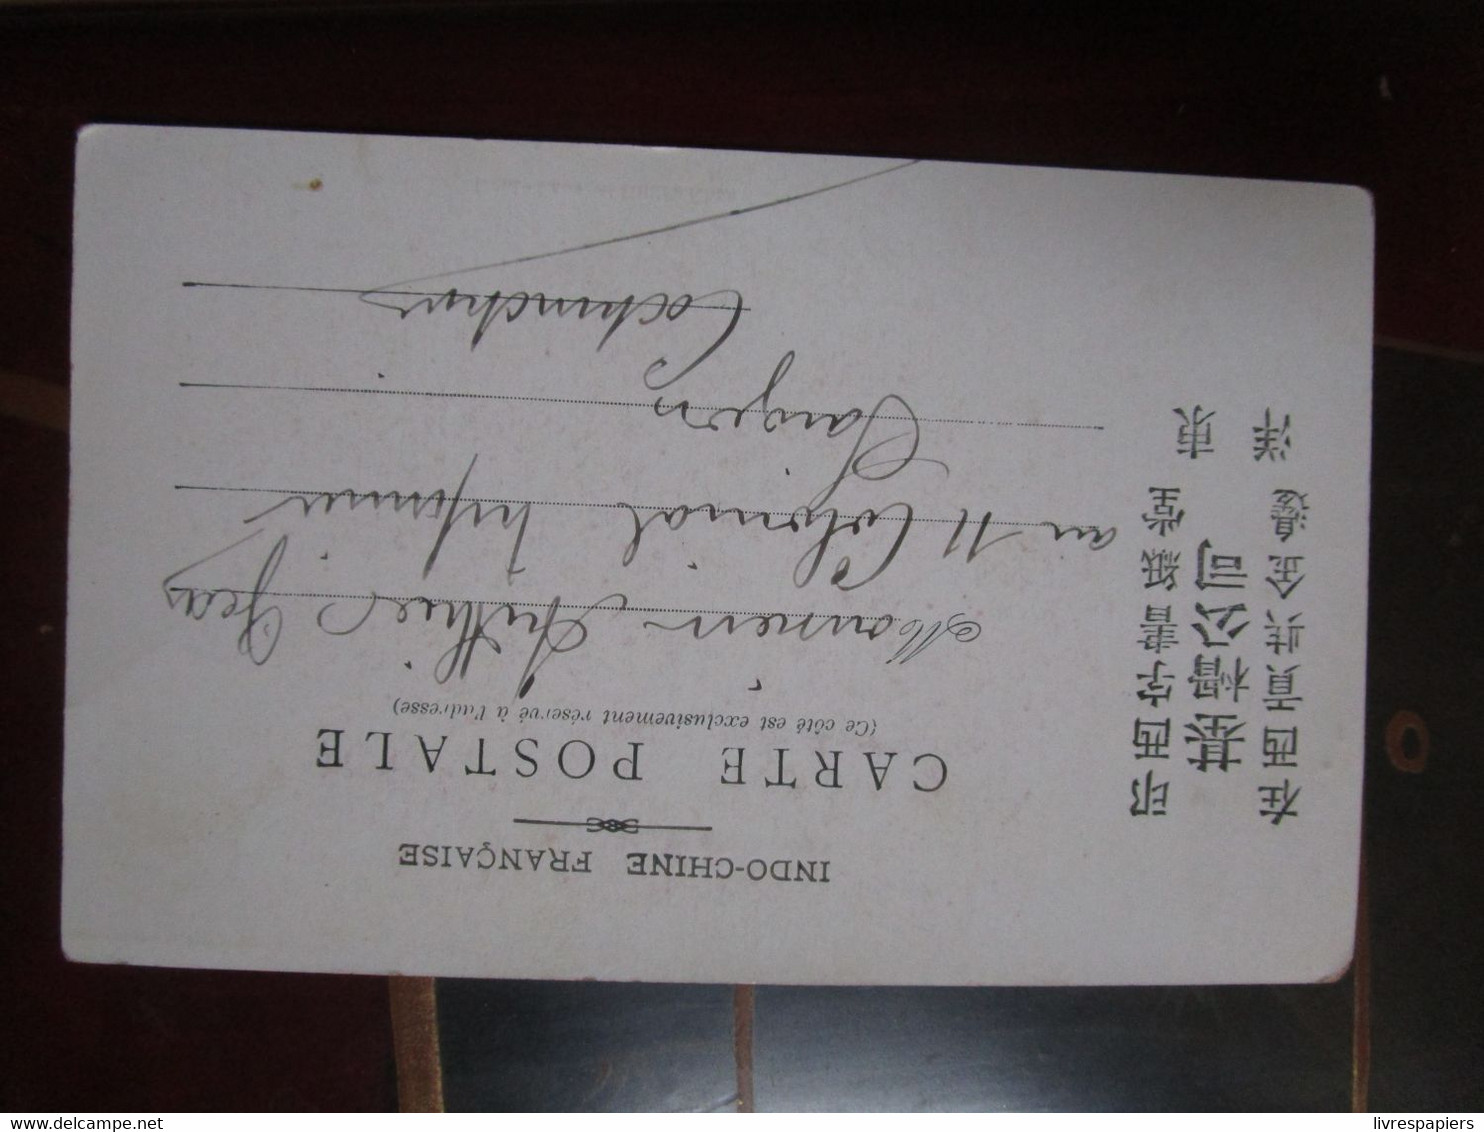 INDO-CHINE FRANÇAISE
CARTE POSTALE
(Ce côté est exclusivement réservé à l'adresse)
Monsieur Authier Jean
au 11 Colonial
Saigon
Cochinchine
東洋
印西字書紙堂
基楅公司
在西貢共全邊
delcampe.net
livrespapiers